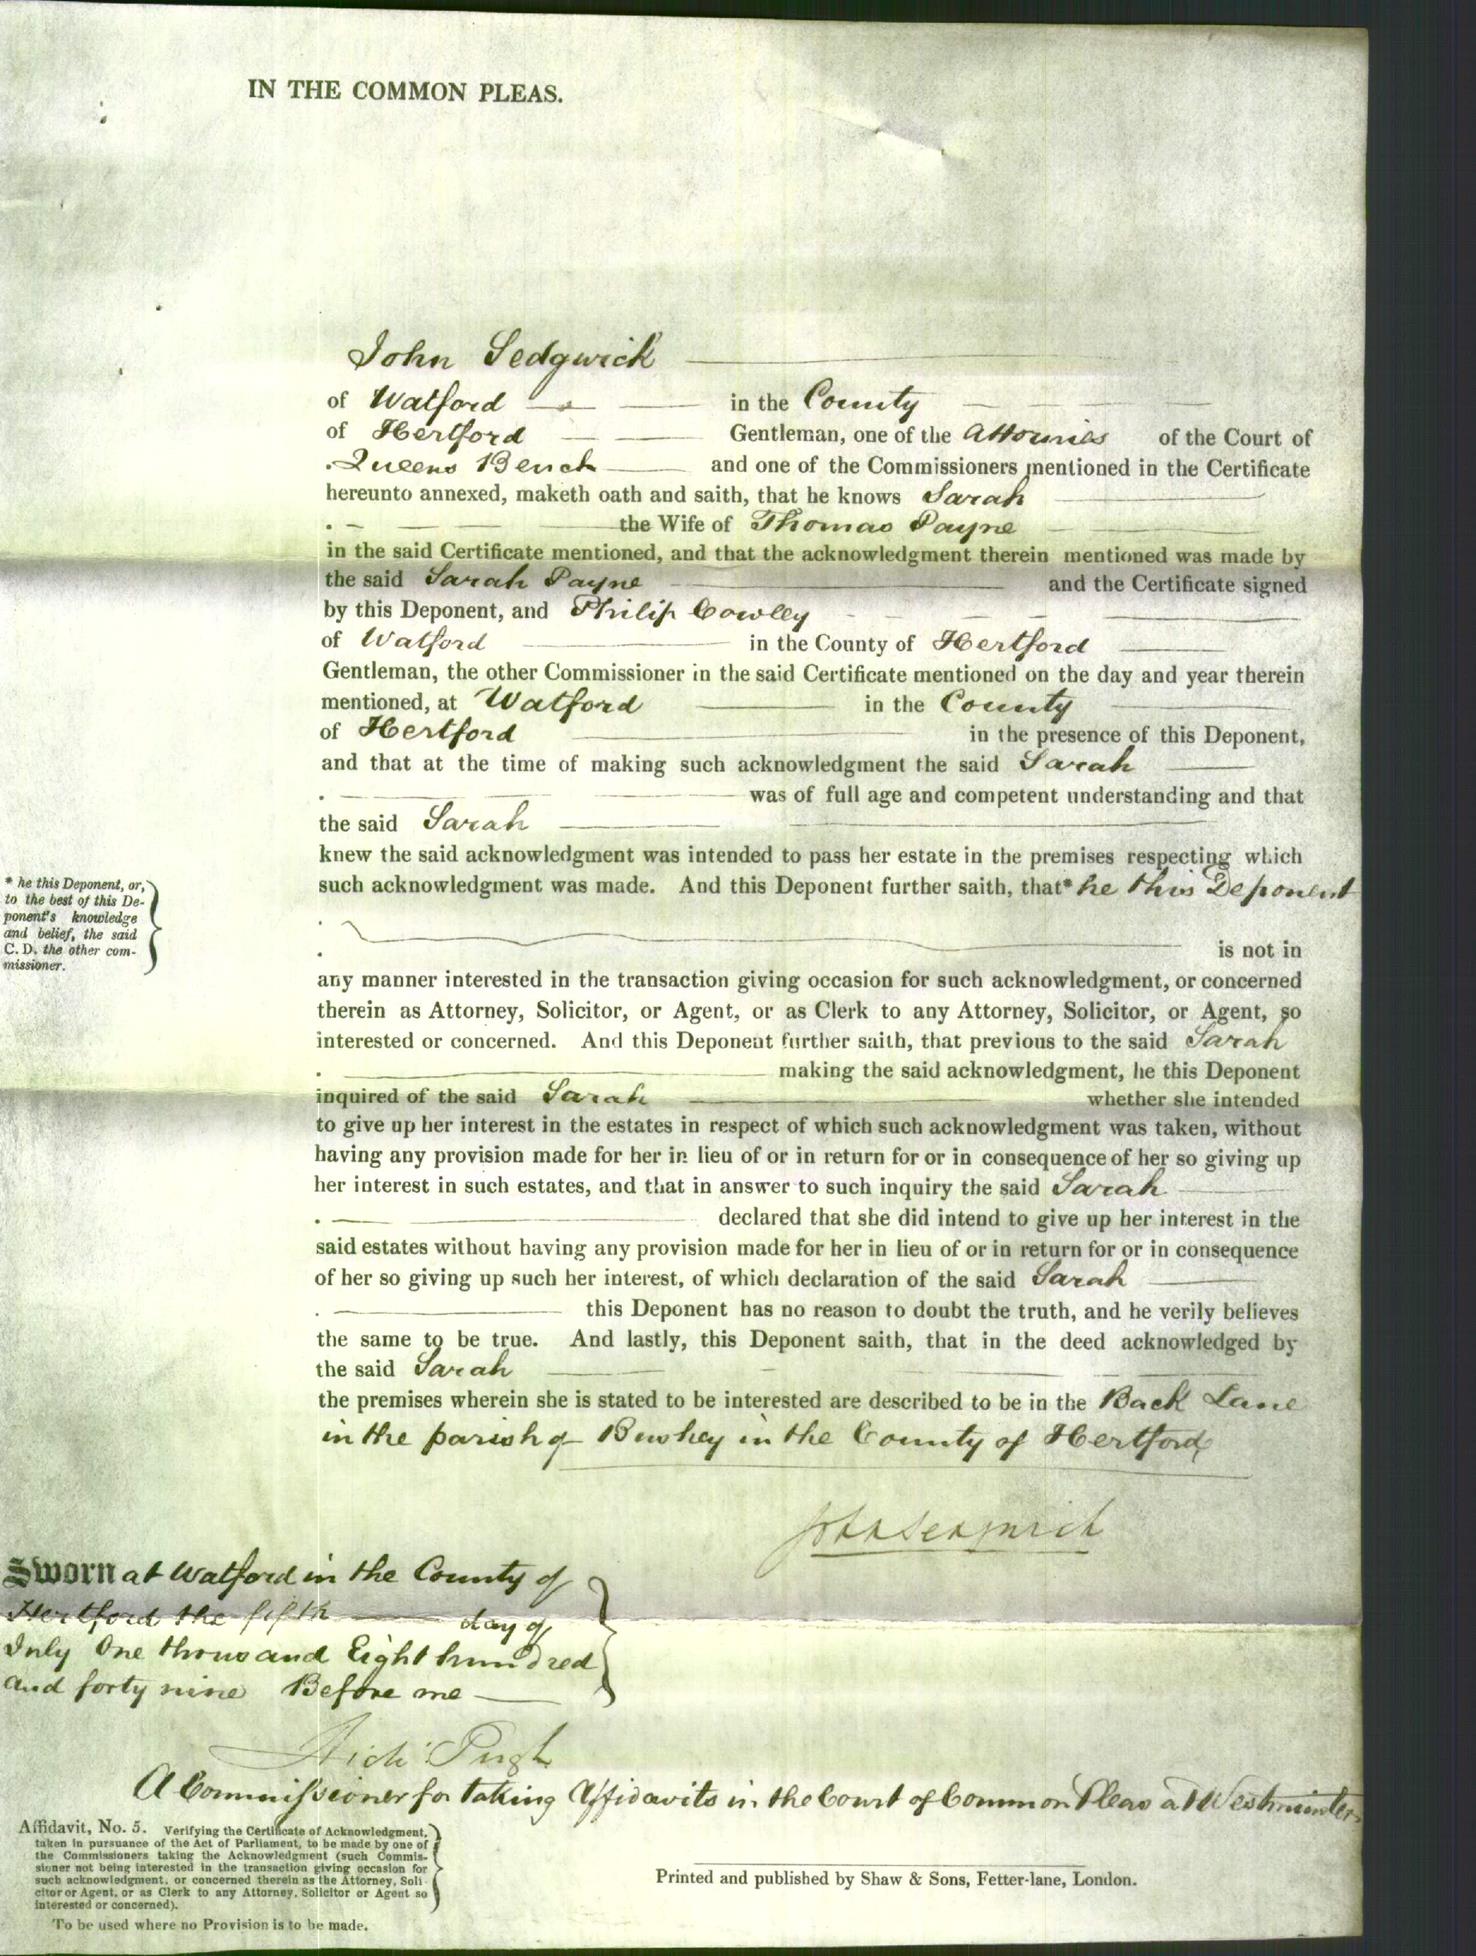 IN THE COMMON PLEAS.
John Sedgwick
of Watford in the County
of Hertford Gentleman, one of the Attornies of the Court of
Queens Bench and one of the Commissioners mentioned in the Certificate
hereunto annexed, maketh oath and saith, that he knows Sarah
the Wife of Thomas Payne
in the said Certificate mentioned, and that the acknowledgment therein mentioned was made by
the said Sarah Payne and the Certificate signed
by this Deponent, and Philip Cowley
of Watford in the County of Hertford
Gentleman, the other Commissioner in the said Certificate mentioned on the day and year therein
mentioned, at Watford in the County
of Hertford in the presence of this Deponent,
and that at the time of making such acknowledgment the said Sarah
was of full age and competent understanding and that
the said Sarah
knew the said acknowledgment was intended to pass her estate in the premises respecting which
such acknowledgment was made. And this Deponent further saith, that* he this Deponent
* he this Deponent, or,
to the best of this De-
ponent's knowledge
and belief, the said
C. D. the other com-
missioner.
is not in
any manner interested in the transaction giving occasion for such acknowledgment, or concerned
therein as Attorney, Solicitor, or Agent, or as Clerk to any Attorney, Solicitor, or Agent, so
interested or concerned. And this Deponent further saith, that previous to the said Sarah
making the said acknowledgment, he this Deponent
inquired of the said Sarah whether she intended
to give up her interest in the estates in respect of which such acknowledgment was taken, without
having any provision made for her in lieu of or in return for or in consequence of her so giving up
her interest in such estates, and that in answer to such inquiry the said Sarah
declared that she did intend to give up her interest in the
said estates without having any provision made for her in lieu of or in return for or in consequence
of her so giving up such her interest, of which declaration of the said Sarah
this Deponent has no reason to doubt the truth, and he verily believes
the same to be true. And lastly, this Deponent saith, that in the deed acknowledged by
the said Sarah
the premises wherein she is stated to be interested are described to be in the Back Lane
in the parish of Bushey in the County of Hertford
John Sedgwick
Sworn at Watford in the County of
Hertford the fifth day of
July One thousand Eight hundred
and forty nine Before me
Pugh
A Commissioner for taking Affidavits in the Court of Common Pleas at Westminster
Affidavit, No. 5. Verifying the Certificate of Acknowledgment,
taken in pursuance of the Act of Parliament, to be made by one of
the Commissioners taking the Acknowledgment (such Commis-
sioner not being interested in the transaction giving occasion for
such acknowledgment, or concerned therein as the Attorney, Soli-
citor or Agent, or as Clerk to any Attorney, Solicitor or Agent so
interested or concerned).
To be used where no Provision is to be made.
Printed and published by Shaw & Sons, Fetter-lane, London.